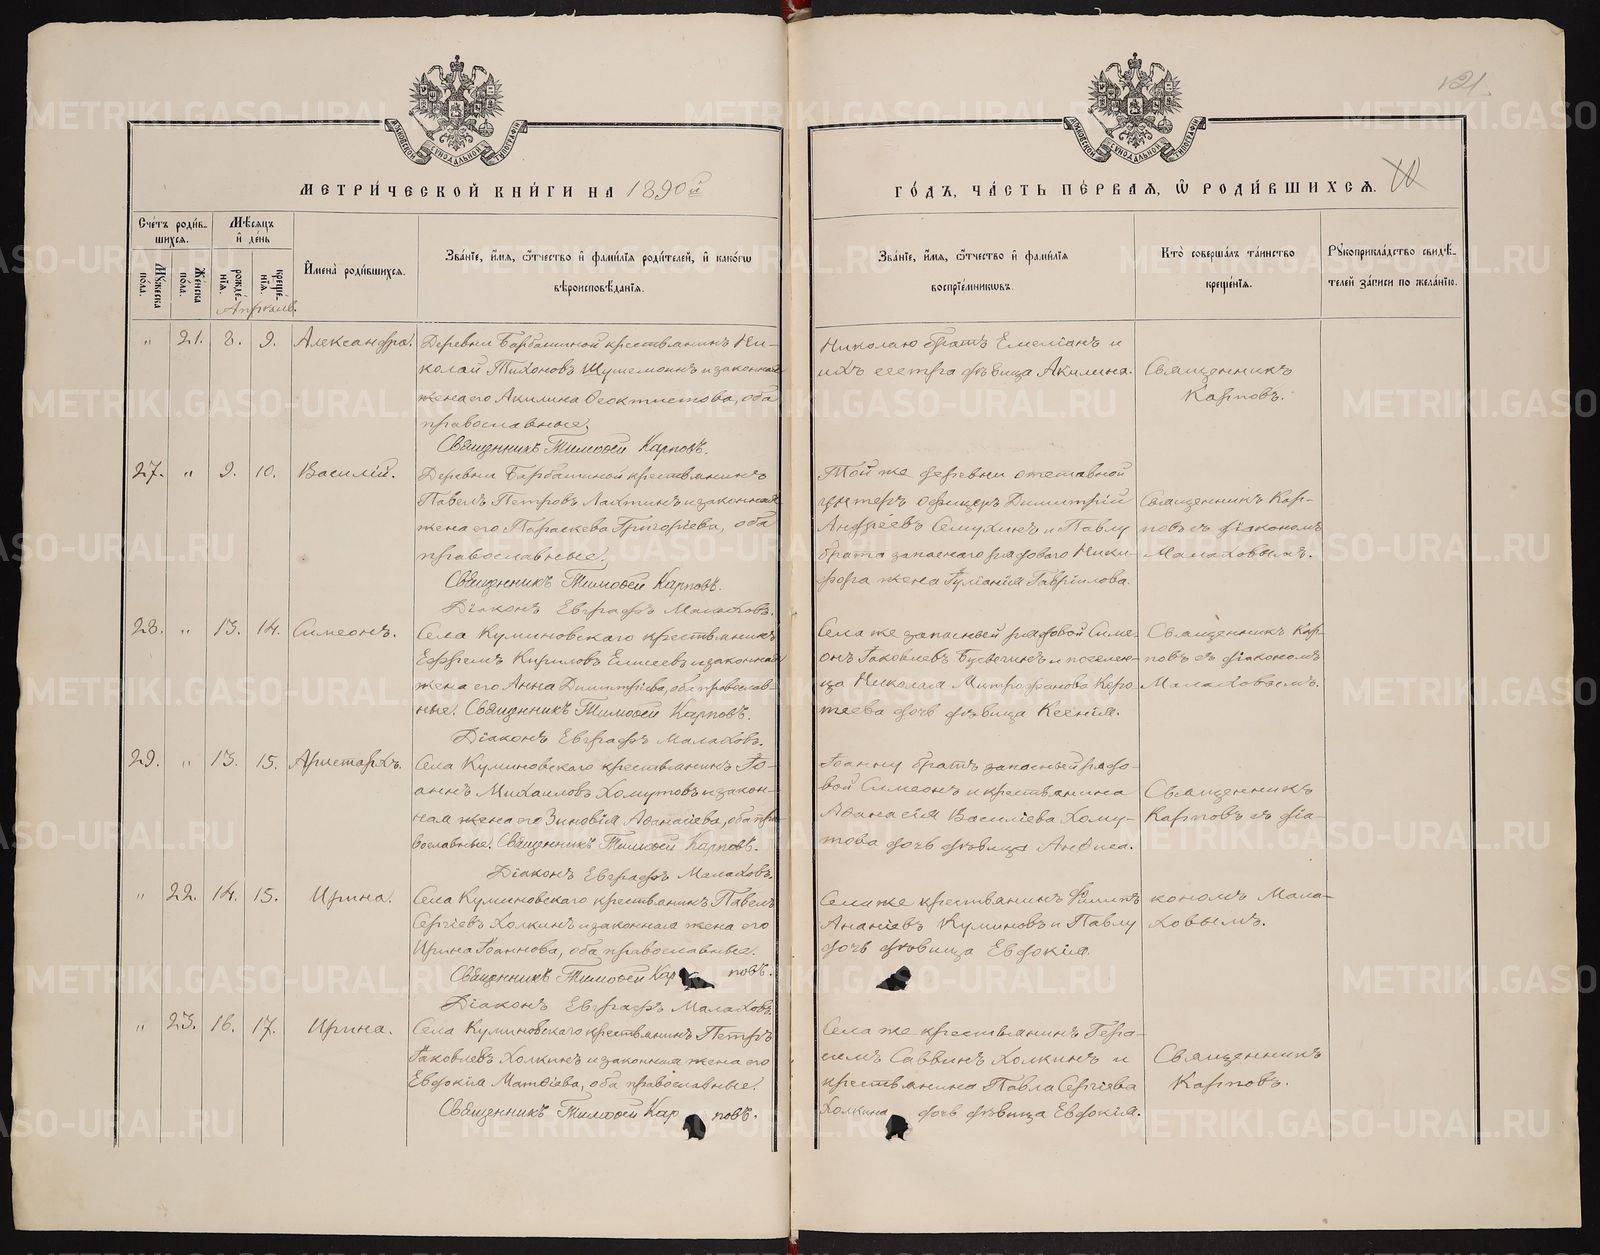 121
МОСКОВСКОЙ СѴНОДАЛЬНОЙ ТИПОГРАФІИ
МОСКОВСКОЙ СѴНОДАЛЬНОЙ ТИПОГРАФІИ
МЕТРИ́ЧЕСКОЙ КНИ́ГИ НА 1890й
ГО́ДЪ, ЧА́СТЬ ПЕ́РВАЯ, Ѡ РОДИ́ВШИХСЯ.
Сче́тъ роди́в-
шихся.
Мѣ́сяцъ
и҆ де́нь
Му́жеска по́ла.
Же́нска по́ла.
рожде́нїя.
креще́нїя.
И҆мена̀ роди́вшихся.
Зва́нїе, и҆́мя, ѻ҆́тчество и҆ фами́лїя роди́телей, и҆ како́гѡ
вѣроисповѣ́данїя.
Зва́нїе, и҆́мя, ѻ҆́тчество и҆ фами́лїя
воспрїе́мникѡвъ.
Кто̀ соверша́лъ та́инство
креще́нїя.
Рꙋкоприкла́дство свидѣ́-
телей за́писи по жела́нїю.
Апрѣль.
" 21. 8. 9. Александра.
Деревни Барбашиной крестьянинъ Ни-
колай Тихоновъ и законная
жена его Акилина Ѳеоктистова, оба
православные.
Священникъ Тимоѳей Карповъ.
Николаю братъ Емеліанъ и
ихъ сестра дѣвица Акилина.
Священникъ
Карповъ.
27. " 9. 10. Василій.
Деревни Барбашиной крестьянинъ
Павелъ Петровъ Лахтинъ и законная
жена его Параскева Григоріева, оба
православные.
Священникъ Тимоѳей Карповъ.
Діаконъ Евграфъ Малаховъ.
Той же деревни отставной
унтеръ офицеръ Димитрій
Андреевъ Семухинъ и Павлу
брата запаснаго рядоваго Ники-
фора жена Гуліанія Гавріилова.
Священникъ Кар-
повъ съ діакономъ
Малаховымъ.
28. " 13. 14. Симеонъ.
Села Куминовскаго крестьянинъ
Ефремъ Кириловъ Елисеевъ и законная
жена его Анна Димитріева, оба православ-
ные. Священникъ Тимоѳей Карповъ.
Діаконъ Евграфъ Малаховъ.
Села же запасный рядовой Симе-
онъ Іаковлевъ и поселен-
ца Николая Митрофанова Коро-
теева дочь дѣвица Ксенія.
Священникъ Кар-
повъ съ діакономъ
Малаховымъ.
29. " 13. 15. Аристархъ.
Села Куминовскаго крестьянинъ Іо-
аннъ Михаиловъ Хомутовъ и закон-
ная жена его Зиновія Аѳанасіева, оба пра-
вославные. Священникъ Тимоѳей Карповъ.
Діаконъ Евграфъ Малаховъ.
Іоанну братъ запасный рядо-
вой Симеонъ и крестьянина
Аѳанасія Василіева Хому-
това дочь дѣвица Анфиса.
Священникъ
Карповъ съ діа-
" 22. 14. 15. Ирина.
Села Куминовскаго крестьянинъ Павелъ
Сергіевъ Холкинъ и законная жена его
Ирина Іоаннова, оба православные.
Священникъ Тимоѳей Карповъ.
Діаконъ Евграфъ Малаховъ.
Села же крестьянинъ Филипъ
Ананіевъ Куминовъ и Павлу
дочь дѣвица Евдокія.
кономъ Мала-
ховымъ.
" 23. 16. 17. Ирина.
Села Куминовскаго крестьянинъ Петръ
Іаковлевъ Холкинъ и законная жена его
Евдокія Матѳіева, оба православные.
Священникъ Тимоѳей Карповъ.
Села же крестьянинъ Гера-
симъ Саввинъ Холкинъ и
крестьянина Павла Сергіева
Холкина дочь дѣвица Евдокія.
Священникъ
Карповъ.
METRIKI.GASO-URAL.RU